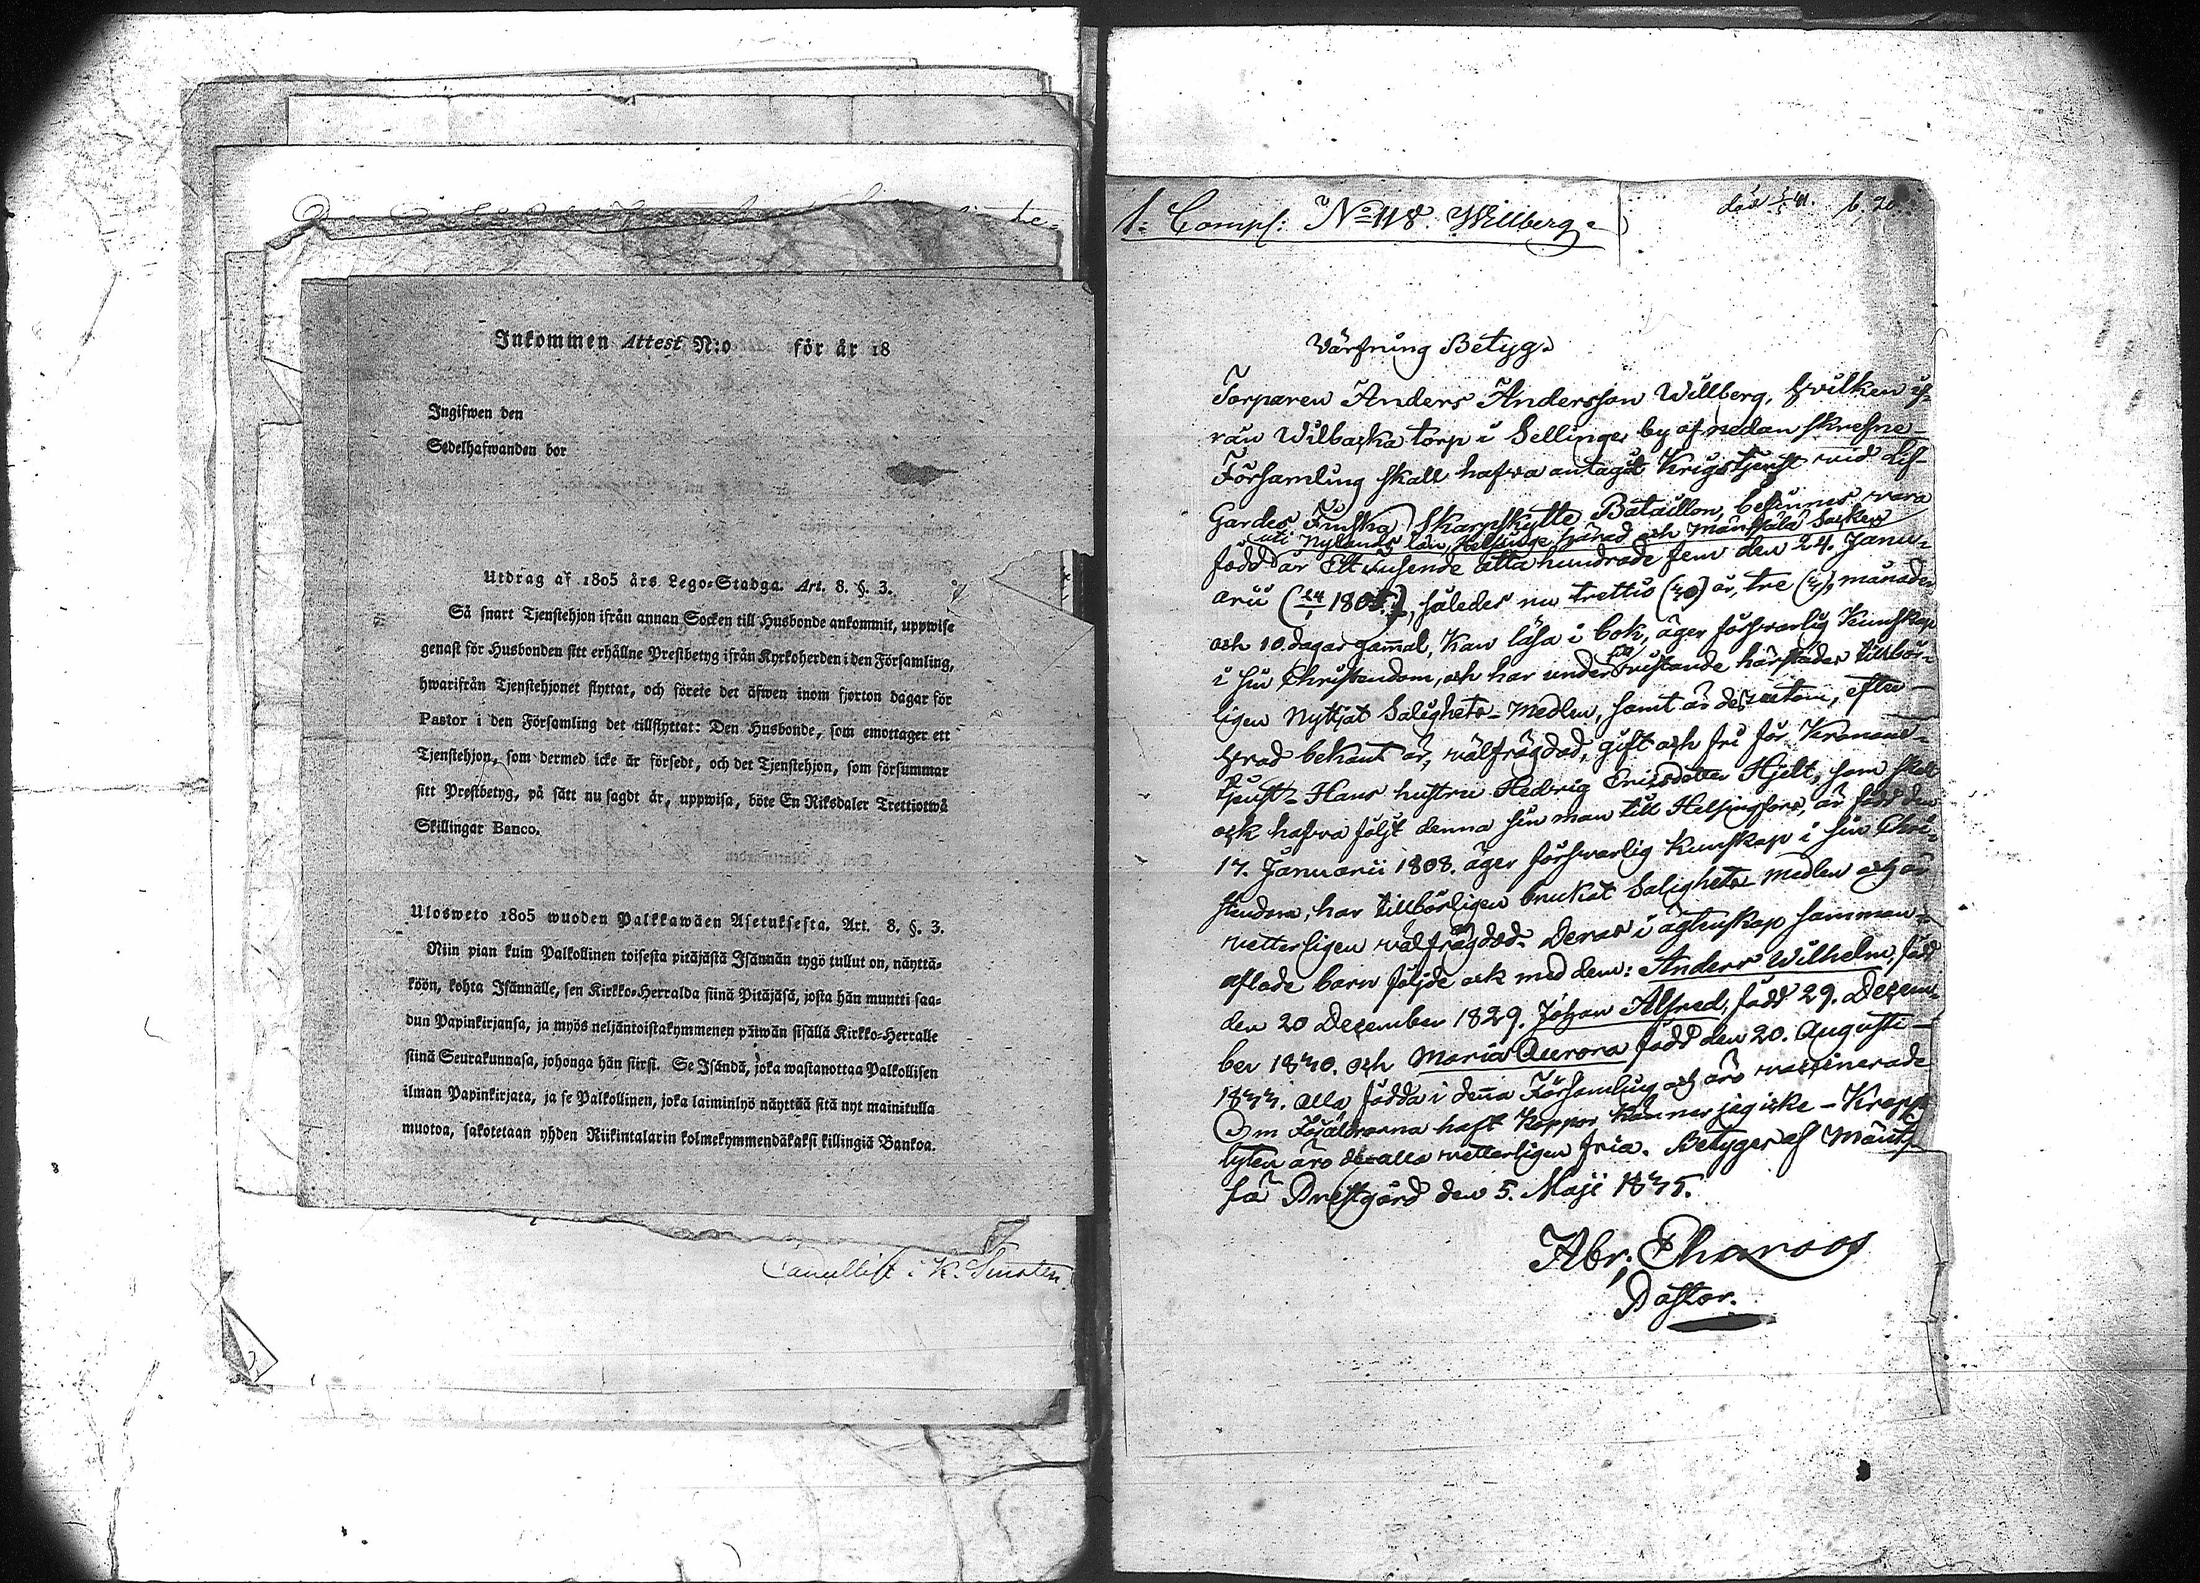 Inkommen Attest N:o för år 18
Ingifwen den
Sedelhafwanden bor
Utdrag af 1805 års Lego-Stadga. Art. 8. §. 3.
Så snart Tjenstehjon ifrån annan Socken till Husbonde ankommit, uppwise
genast för Husbonden sitt erhållne Prestbetyg ifrån Kyrkoherden i den Församling,
hwarifrån Tjenstehjonet flyttat, och förete det äfwen inom fjorton dagar för
Pastor i den Församling det tillflyttat: Den Husbonde, som emottager ett
Tjenstehjon, som dermed icke är försedt, och det Tjenstehjon, som försummar
sitt Prestbetyg, på sätt nu sagdt är, uppwisa, böte En Riksdaler Trettiotwå
Skillingar Banco.
Ulosweto 1805 wuoden Palkkawäen Asetuksesta. Art. 8. §. 3.
Niin pian kuin Palkollinen toisesta pitäjästä Isännän tygö tullut on, näyttä-
köön, kohta Isännälle, sen Kirkko-Herralda siinä Pitäjäsä, josta hän muutti saa-
dun Papinkirjansa, ja myös neljäntoistakymmenen päiwän sisällä Kirkko-Herralle
siinä Seurakunnasa, johonga hän siirsi. Se Isändä, joka wastanottaa Palkollisen
ilman Papinkirjata, ja se Palkollinen, joka laiminlyö näyttää sitä nyt mainitulla
muotoa, sakotetaan yhden Riikintalarin kolmekymmendäkaksi killingiä Bankoa.
Cancellist i K. Senaten.
1:a Comp: No 118. Willberg.
död
Värfning Betyg.
Torparen Anders Andersson Willberg, hvilken if-
rån Wilbacka torp i Sellinge by af nedan skrefne
Församling skall hafva antagit Krigstjenst vid Lif-
Gardes Finska Skarpskytte Bataillon, befinnes vara
uti Nylands län, Helsinge härad och Mäntsälä Socken
född år Ett tusende åtta hundrade fem den 24. Janu-
arii (24/1 1805), således nu trettio (40) år, tre (3) månader
och 10. dagar gammal, kan läsa i bok, äger försvarlig kunskap
i sin Christendom, och har under vistande härstädes tillbör-
ligen nyttjat Salighets-Medlen, samt är dessutom, efter
hvad bekant är, välfrägdad, gift och fri för Kronane-
tjenst. Hans hustru Hedvig Ericsdotter Hjelt, som skall
ock hafva följt denna sin man till Helsingfors, är född den
17. Januarii 1808. äger försvarlig kunskap i sin Chri-
stendom, har tillbörligen brukat Salighets Medlen och är
vetterligen välfrägdad. Deras i ägtenskap samman-
aflade barn följde ock med dem: Anders Wilhelm, född
den 20 December 1829. Johan Alfred, född 29. Decem-
ber 1840. och Maria Aurora född den 20. Augusti
1844. alla födda i denna Församling och äro vaccinerade
Om Föräldrarna haft koppor känner jag icke - Kropps
lyten äro de alla vetterligen fria. Betyges af Mänt-
sälä Prestgård den 5. Maji 1845.
Abr:
Pastor.